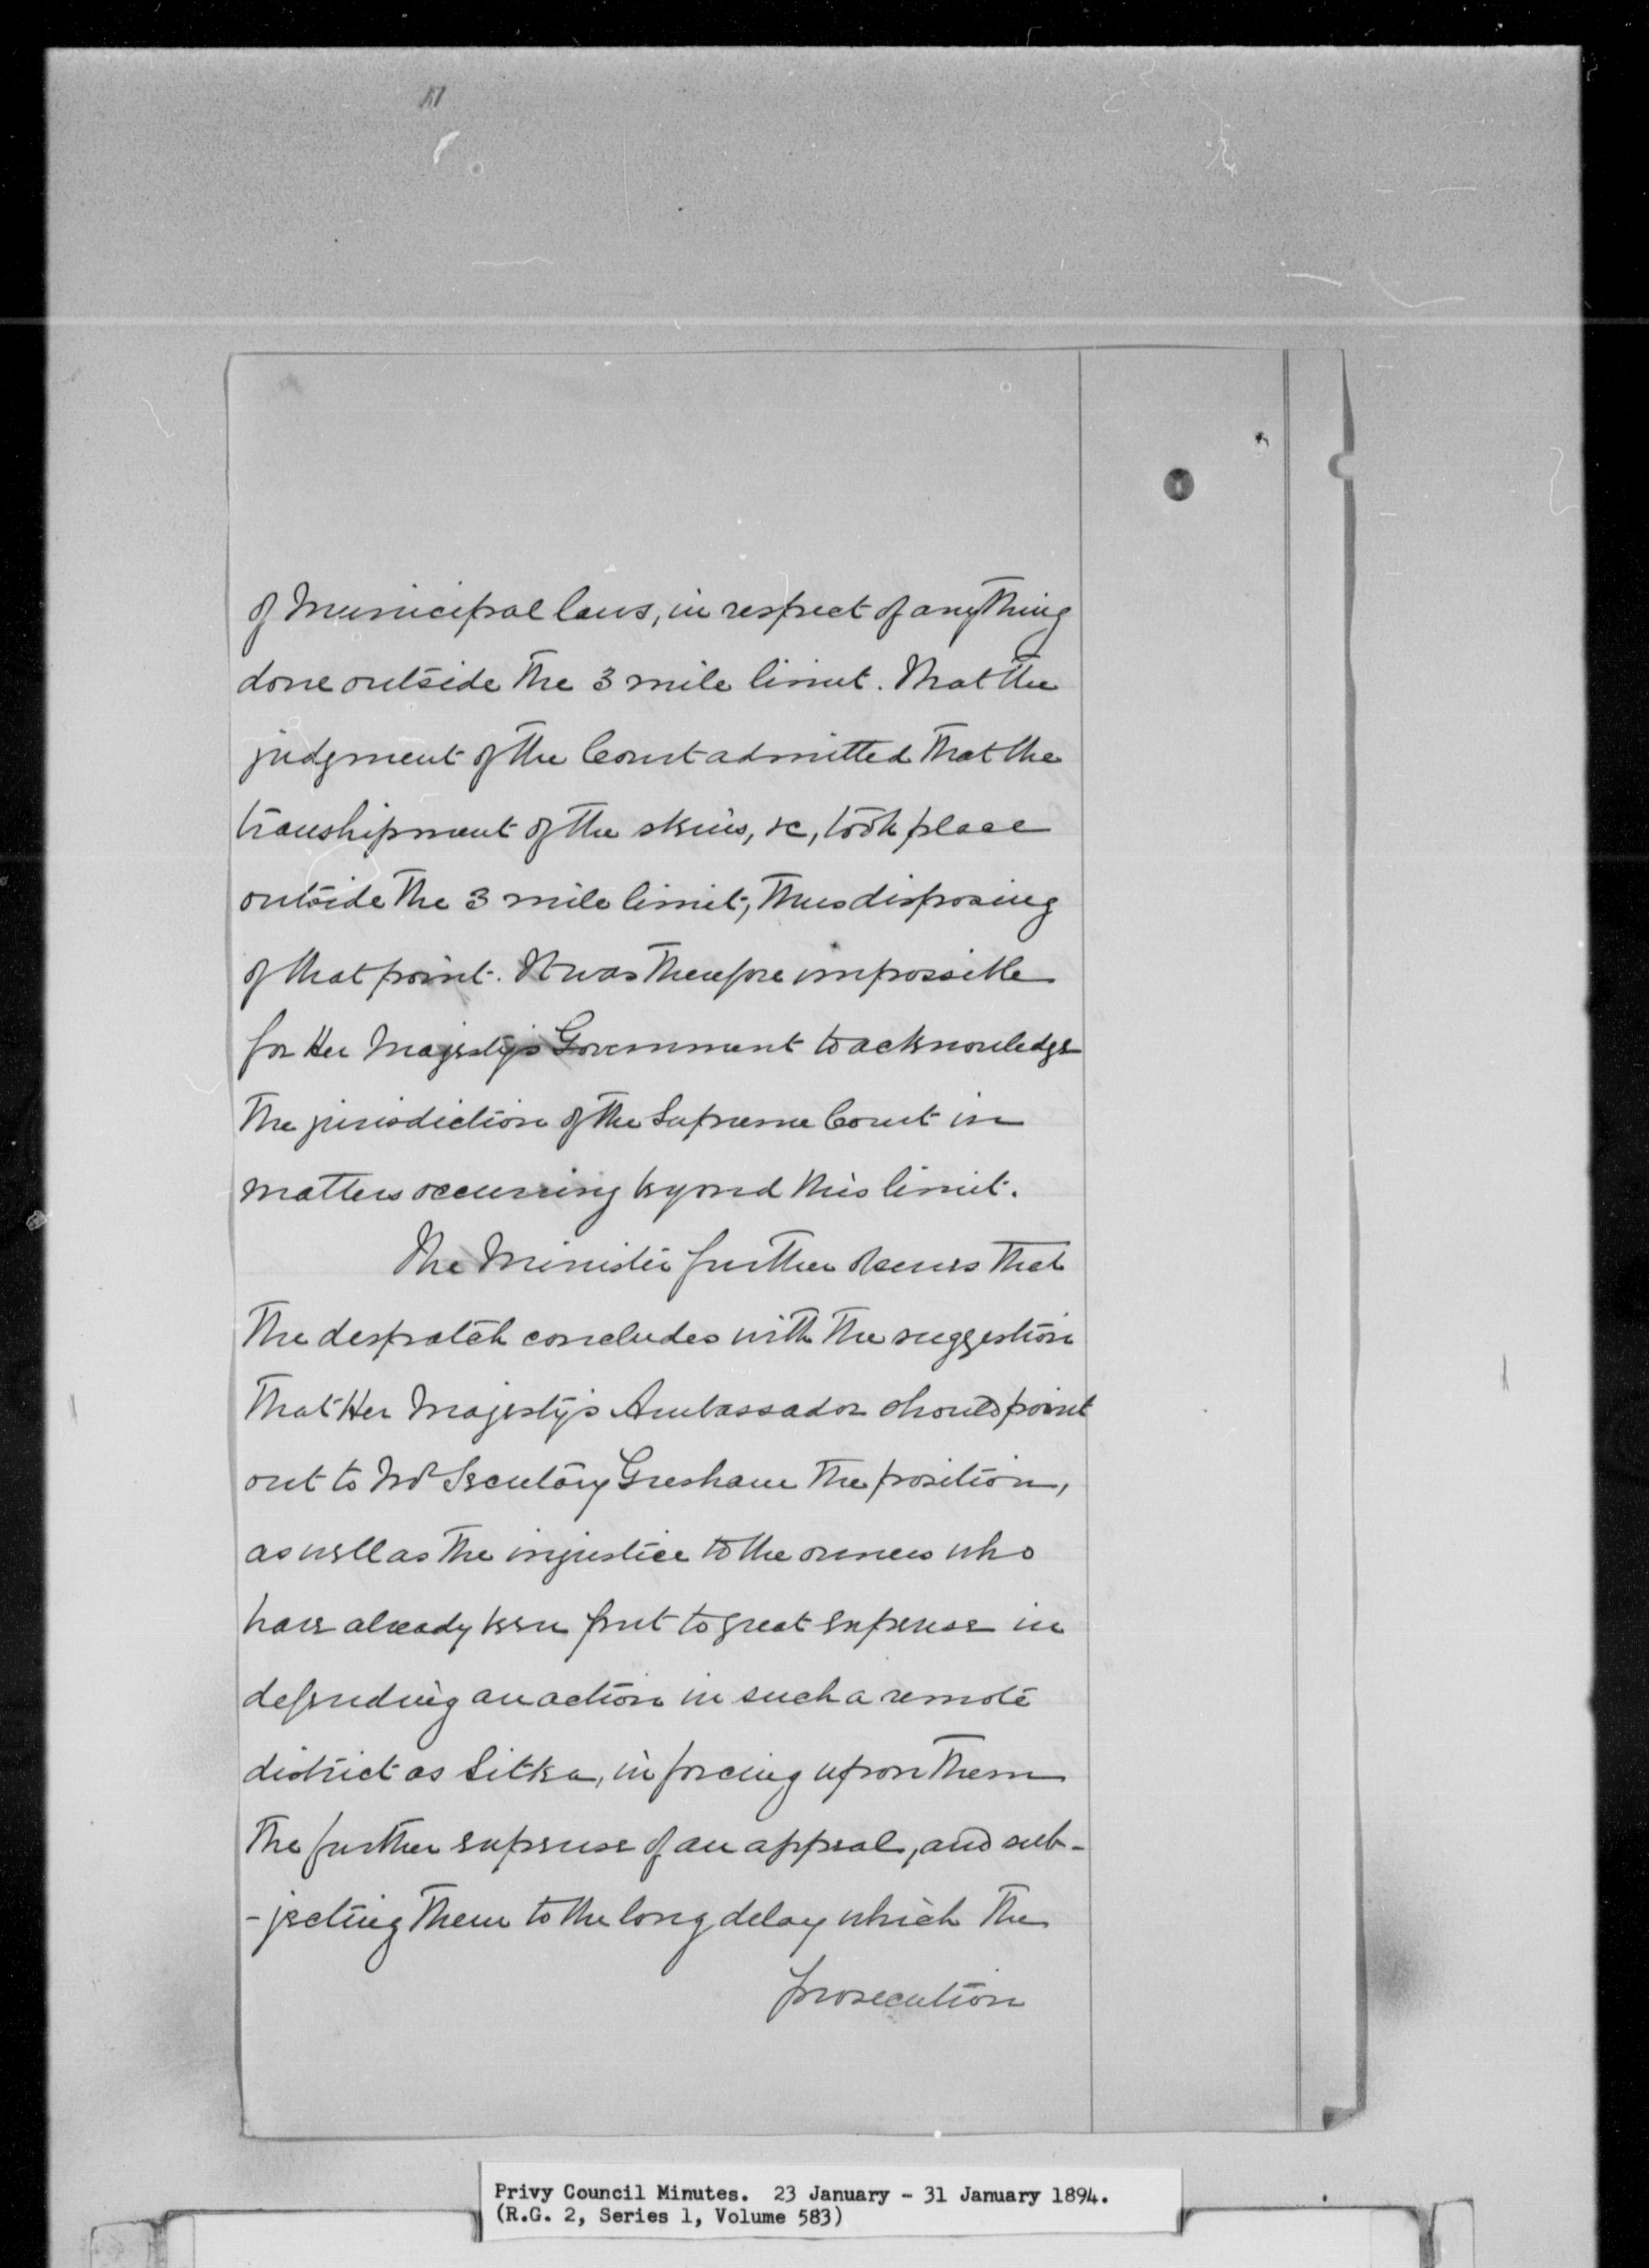 of Municipal laws, in respect of anything
done outside the 3 mile limit. That the
judgment of the Court admitted that the
transhipment of the skins, &c, took place
outside the 3 mile limit, thus disposing
of that point. It was therefore impossible
for Her Majesty's Government to acknowledge
the jurisdiction of the Supreme Court in
matters occurring beyond this limit.
The Minister further observes that
the despatch concludes with the suggestion
that Her Majesty's Ambassador should point
out to Mr Secretary Gresham the position,
as well as the injustice to the owners who
have already been put to great expense in
defending an action in such a remote
district as Sitka, in forcing upon them
the further expense of an appeal, and sub-
-jecting them to the long delay which the
prosecution
Privy Council Minutes. 23 January - 31 January 1894.
(R.G. 2, Series 1, Volume 583)